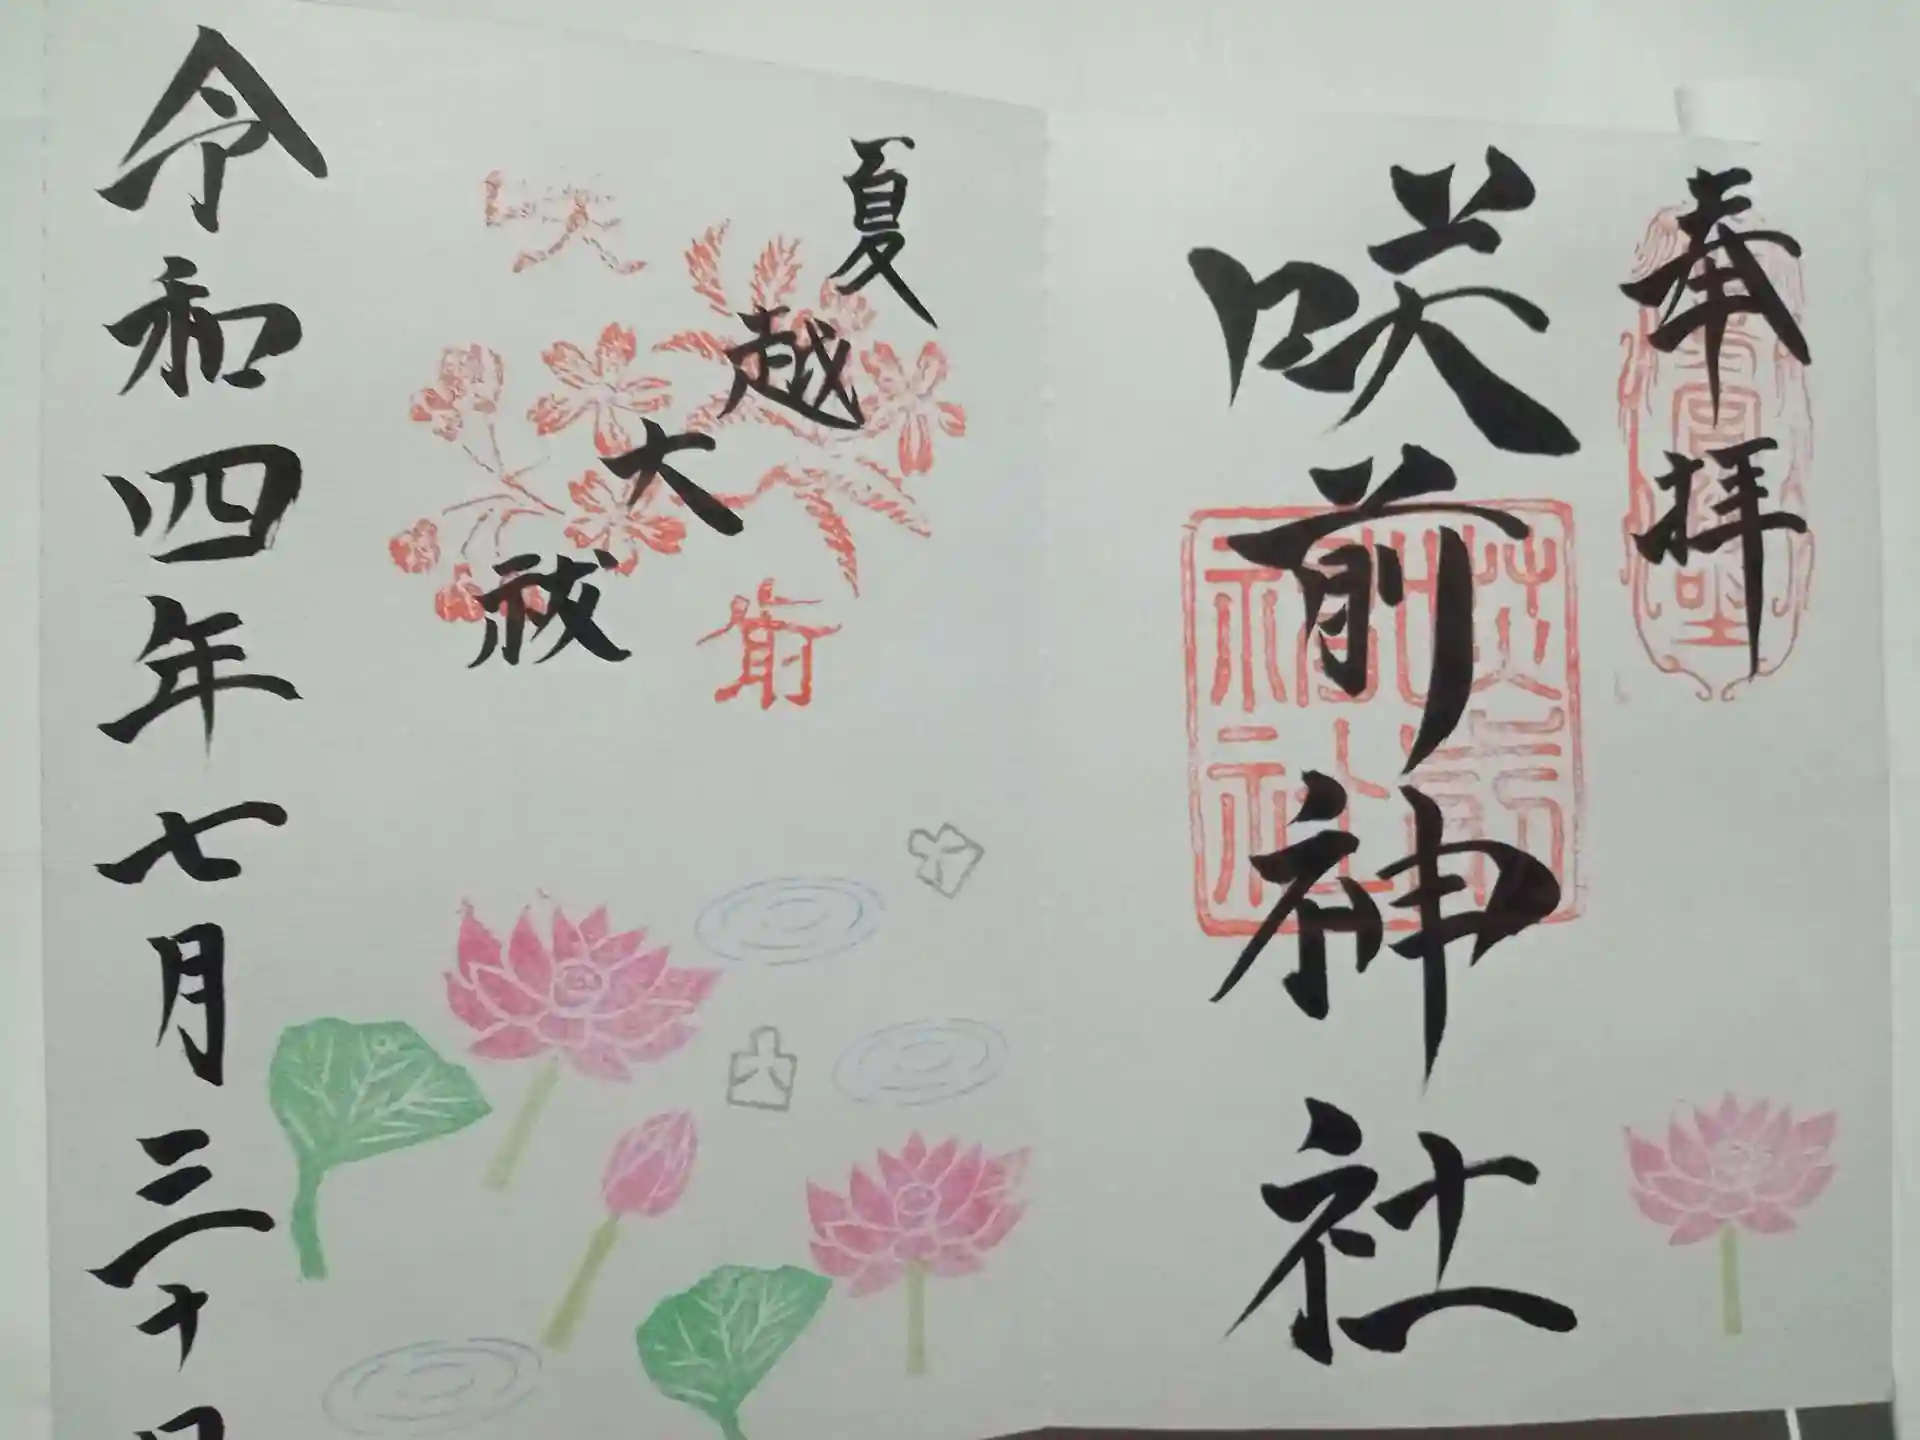 奉拝
咲前神社
夏越大祓
咲
前
令和四年七月三十日
咲前神社